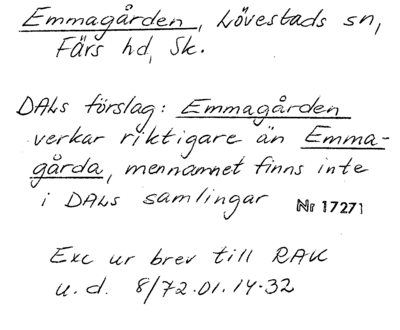 Emmagården, Lövestads sn,
Färs hd, Sk.
DALs förslag: Emmagården
verkar riktigare än Emma-
gårda, mennamnet finns inte
i DALs samlingar Nr 17271
Exc ur brev till RAK
u.d. 8/72.01.14-32